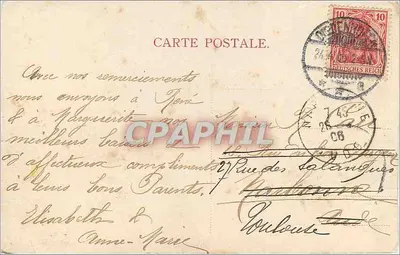 CARTE POSTALE.
10 10
DEUTSCHES REICH
Avec nos remerciements
nous envoyons à René
& à Marguerite nos
meilleurs baisers
d'affectueux compliments
à leurs bons Parents.
Elisabeth &
Anne-Marie
27 Rue des Salenques
Narbonne
Aude
Toulouse
CPAPHIL